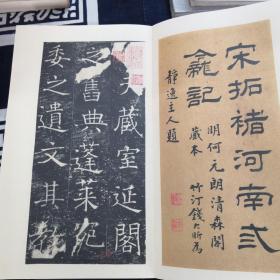 宋拓褚河南三
龕記
明何元朗清森閣
藏本
竹汀錢大昕為
靜逸主人題
天藏室延閣
之舊典蓬萊紀
委之遺文其教